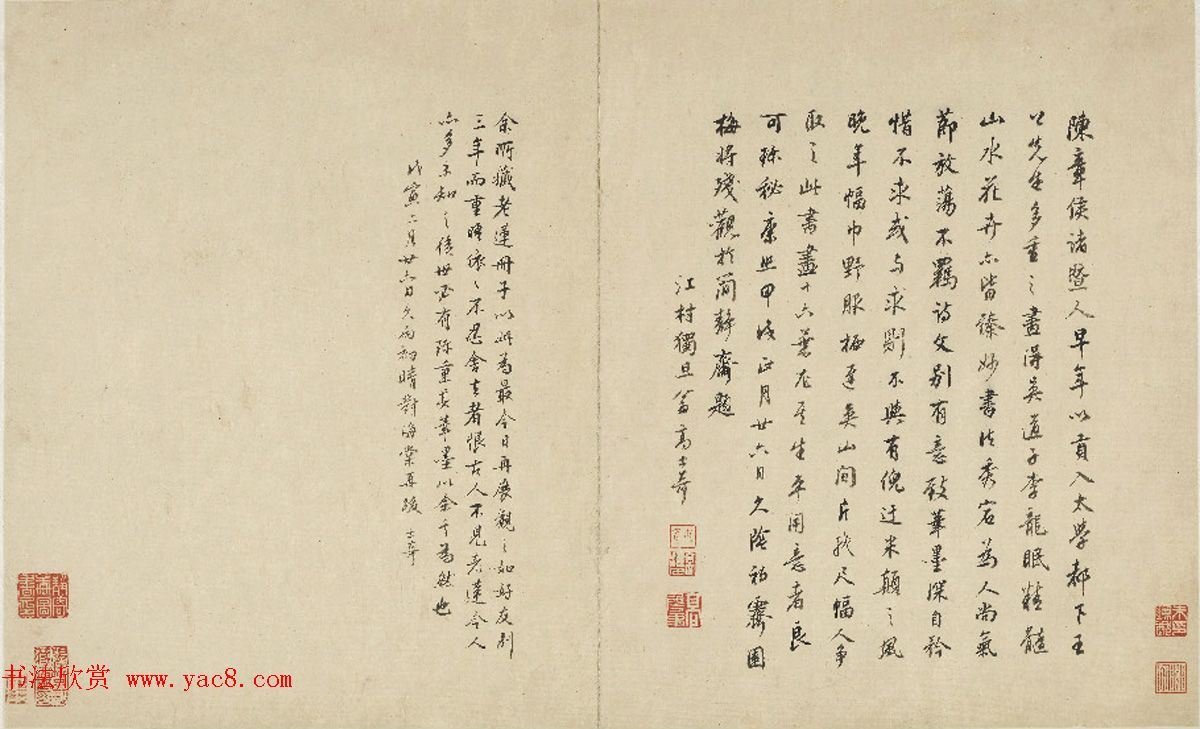 陳章侯諸暨人早年以貢入太學都下王
公先生多重之畫得吳道子李龍眠精髓
山水花卉亦皆臻妙書法秀宕為人尚氣
節放蕩不羈詩文別有意致筆墨深自矜
惜不求或与求剔不與有倪迂米顛之風
晚年幅巾野服栖遲吳山間片紙尺幅人争
取之此書畫十六葉尤其生平用意者良
可珎秘康熙甲戌正月廿六日久陰初霽園
梅将殘觀於簡靜齋題
江村獨旦翁高士奇
余所藏老蓮冊子以此為最今日再展觀之如好友別
三年而重晤依依不忍舍去者恨古人不見老蓮今人
亦多不知之後世必有珎重其筆墨以余言為然也
戊寅二月廿六日久雨初晴對海棠再跋 士奇
书法欣赏 www.yac8.com